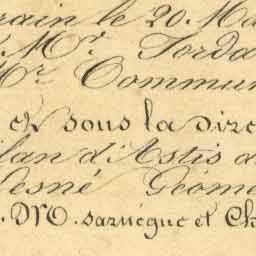 rain le 20. Ma
Mr. Jorda
Mr Commun
et sous la dire
ilan d'Astis a
esné Géome
. MO. sarnegue et Ch